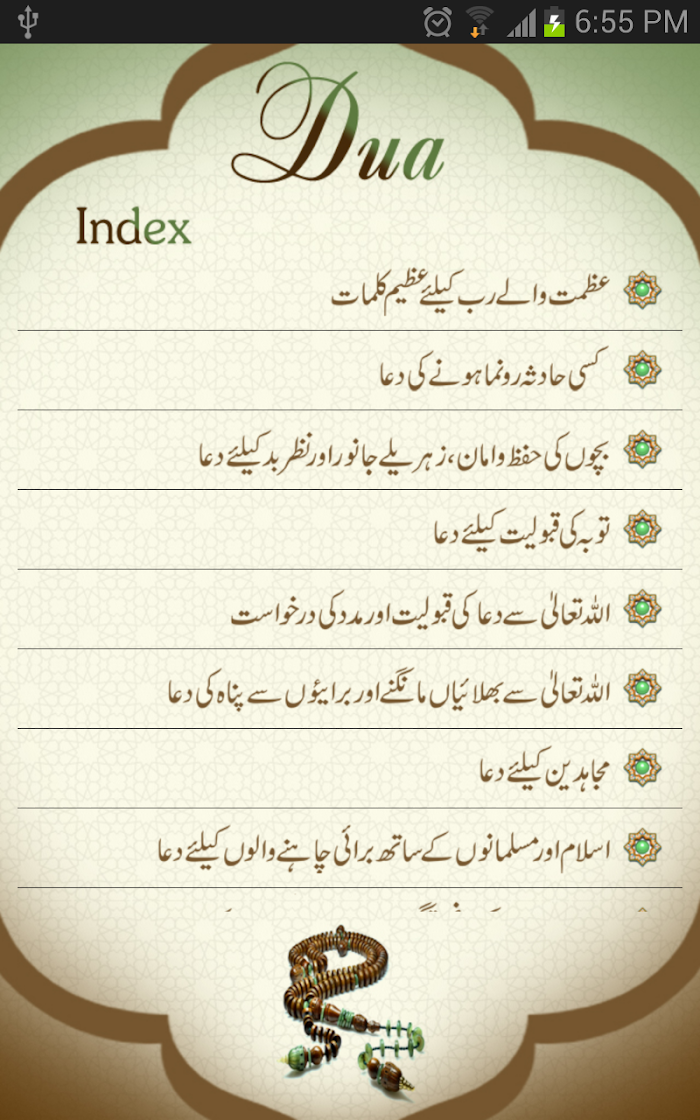 6:55 PM
Dua
Index
عظمت والے رب کیلئے عظیم کلمات
کسی حادثہ رونما ہونے کی دعا
بچوں کی حفظ و امان، زہریلے جانور اور نظر بد کیلئے دعا
توبہ کی قبولیت کیلئے دعا
اللہ تعالیٰ سے دعا کی قبولیت اور مدد کی درخواست
اللہ تعالیٰ سے بھلائیاں مانگنے اور برایئوں سے پناہ کی دعا
مجاہدین کیلئے دعا
اسلام اور مسلمانوں کے ساتھ برائی چاہنے والوں کیلئے دعا